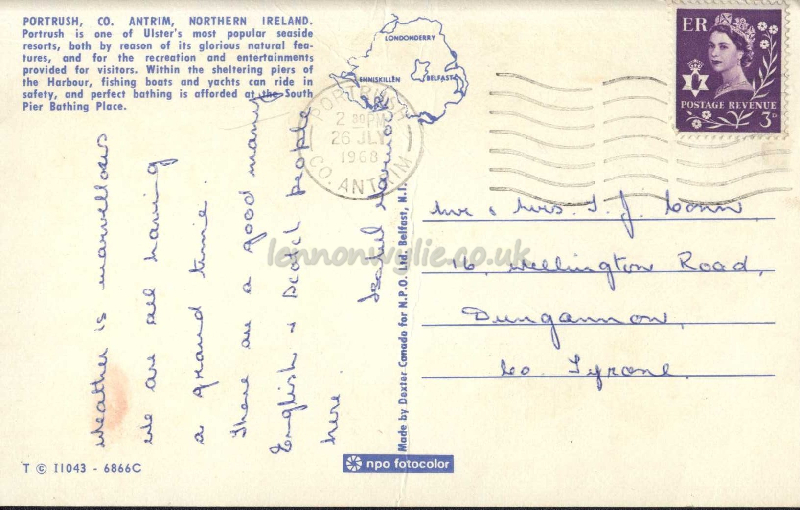 PORTRUSH, CO. ANTRIM, NORTHERN IRELAND.
Portrush is one of Ulster's most popular seaside
resorts, both by reason of its glorious natural fea-
tures, and for the recreation and entertainments
provided for visitors. Within the sheltering piers of
the Harbour, fishing boats and yachts can ride in
safety, and perfect bathing is afforded at the South
Pier Bathing Place.
LONDONDERRY
ENNISKILLEN
BELFAST
PORTRUSH
2 30PM
26 JLY
1968
CO. ANTRIM
ER
POSTAGE REVENUE
3D
Weather is marvellous
We are all having
a grand time.
There are a good many
English & Scotch people
here.
Isabel
Mr & Mrs. T. J. Conn,
16, Wellington Road,
Dungannon,
Co. Tyrone.
Made by Dexter Canada for N.P.O. Ltd. Belfast, N.I.
lennonwylie.co.uk
T © I1043 - 6866C
npo fotocolor